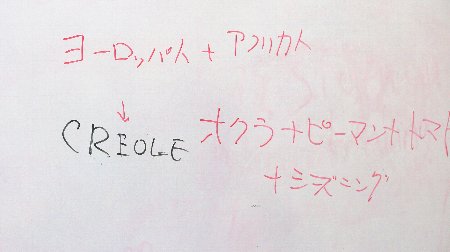 ヨーロッパ人 + アフリカ人
↓
CREOLE オクラ+ピーマン+トマト
+シーズニング